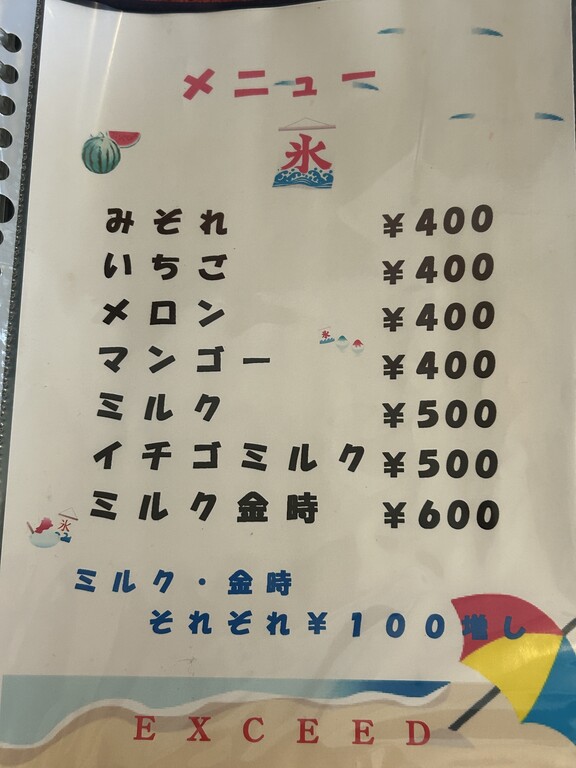 メニュー
氷
みぞれ ¥400
いちご ¥400
メロン ¥400
マンゴー ¥400
氷
ミルク ¥500
イチゴミルク ¥500
ミルク金時 ¥600
氷
ミルク・金時
それぞれ¥100増し
EXCEED